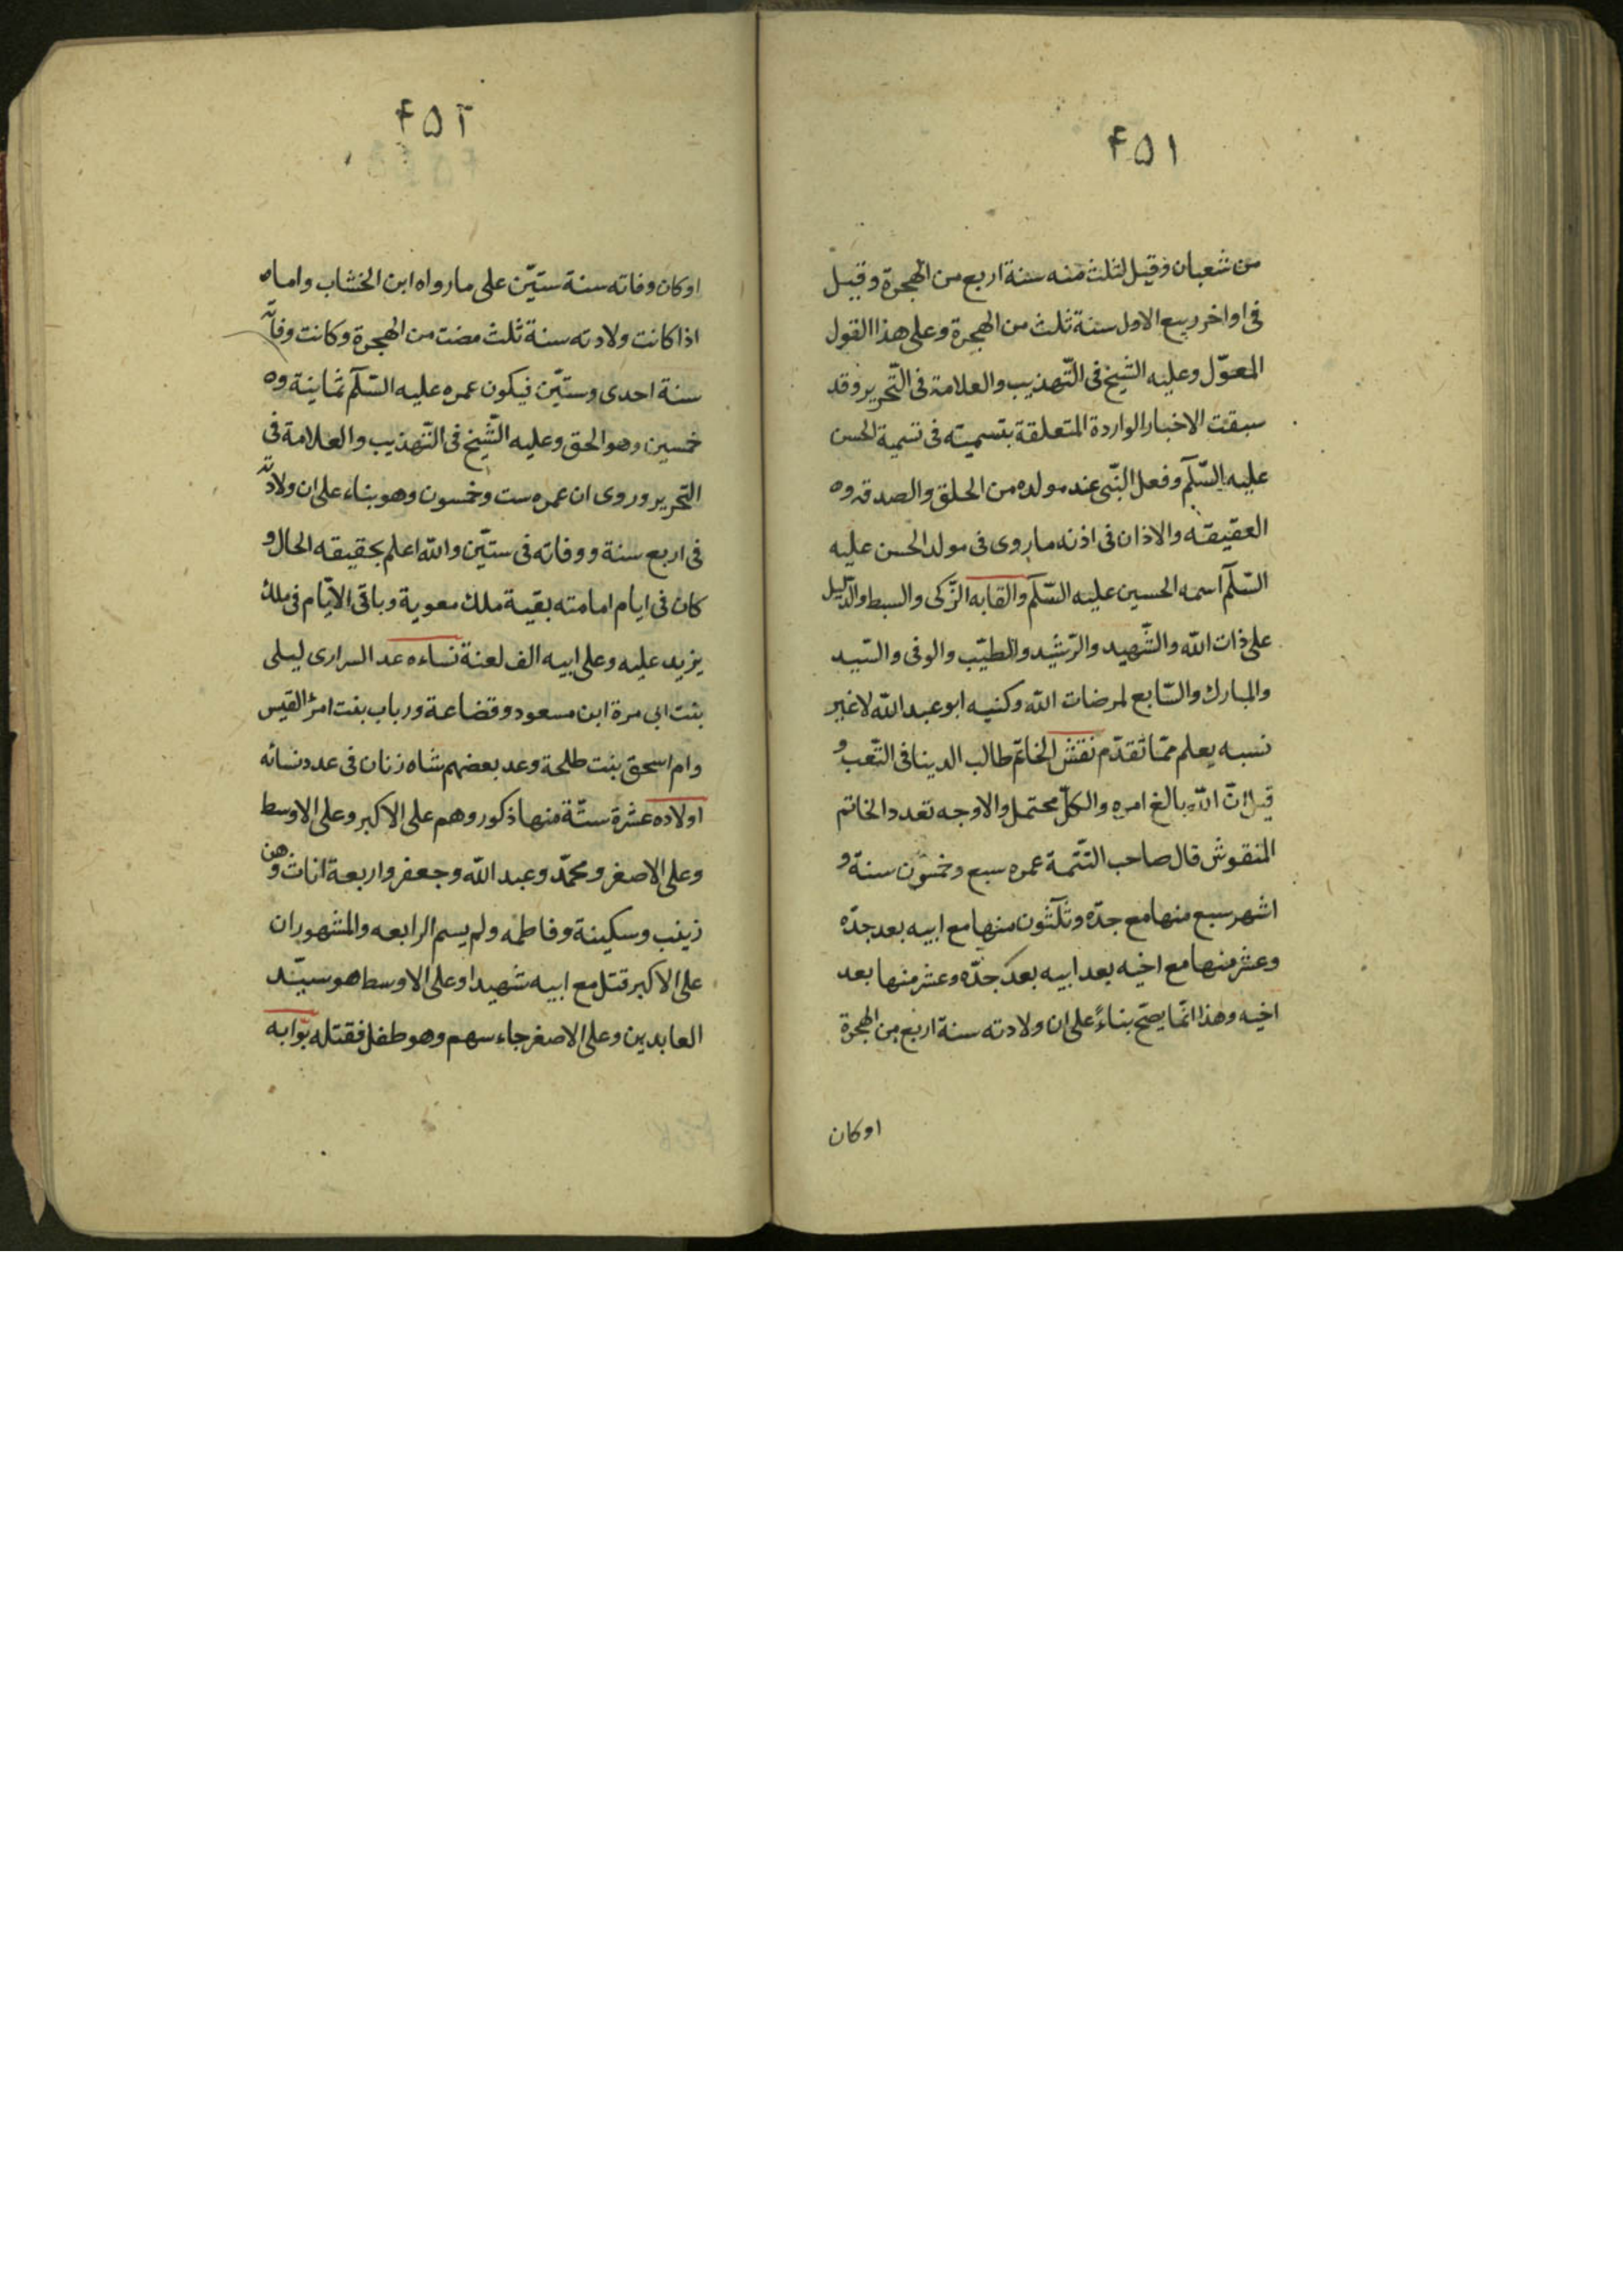 ۴۵۱
من شعبان وقيل لثلث منه سنة اربع من الهجرة وقيل
فى اواخر ربيع الاول سنة ثلث من الهجرة وعلى هذا القول
المعوّل وعليه الشيخ فى التّهذيب والعلامة فى التّحرير وقد
سبقت الاخبار الواردة المتعلقة بتسميته فى تسمية الحسن
عليه السّلآم وفعل النّبى عند مولده من الحلق والصدقه و
العقيقه والاذان فى اذنه ما روى فى مولد الحسن عليه
السّلآم اسمه الحسين عليه السّلآم والقابه الزّكى والسبط والدّليل
على ذات اللّه والشّهيد والرّشيد والطيّب والوفى والسّيد
والمبارك والتّابع لمرضات اللّه وكنيه ابو عبد اللّه لا غير
نسبه يعلم ممّا تقدّم نقش الخاتم طالب الدينا فى التّعب و
قيل انّ اللّه بالغ امره والكلّ محتمل والاوجه تعدد الخاتم
المنقوش قال صاحب التتّمة عمره سبع وخمسون سنة و
اشهر سبع منها مع جدّه وثلٓثون منها مع ابيه بعد جدّه
وعشر منها مع اخيه بعد ابيه بعد جدّه وعشر منها بعد
اخيه وهذا انّما يصحّ بناءً على ان ولادته سنة اربع من الهجرة
اوكان
۴۵۲
اوكان وفاته سنة ستيّن على ما رواه ابن الخشاب واما
اذا كانت ولادته سنة ثلث مضت من الهجرة وكانت وفاته
سنة احدى وستيّن فيكون عمره عليه السّلآم ثمانية و
خمسين وهو الحق وعليه الشّيخ فى التّهذيب والعلامة فى
التّحرير وروى ان عمره ست وخمسون وهو بناء على ان ولادته
فى اربع سنة ووفاته فى ستيّن واللّه اعلم بحقيقه الحال و
كان فى ايام امامته بقية ملك معوية وباقى الايّام فى ملك
يزيد عليه وعلى ابيه الف لعنة نساءه عد السرارى ليلى
بنت ابى مرة ابن مسعود وقضاعة ورباب بنت امرؤ القيس
وام اسحق بنت طلحة وعد بعضهم شاه زنان فى عدد نسائه
اولاده عشرة ستّة منها ذكور وهم على الاكبر وعلى الاوسط
وعلى الاصغر ومحمّد وعبد اللّه وجعفر واربعة اناث وهن
زينب وسكينة وفاطمه ولم يسم الرابعه والمشهور ان
على الاكبر قتل مع ابيه شهيدا وعلى الاوسط هو سيّد
العابدين وعلى الاصغر جاء سهم وهو طفل فقتله بوّابه